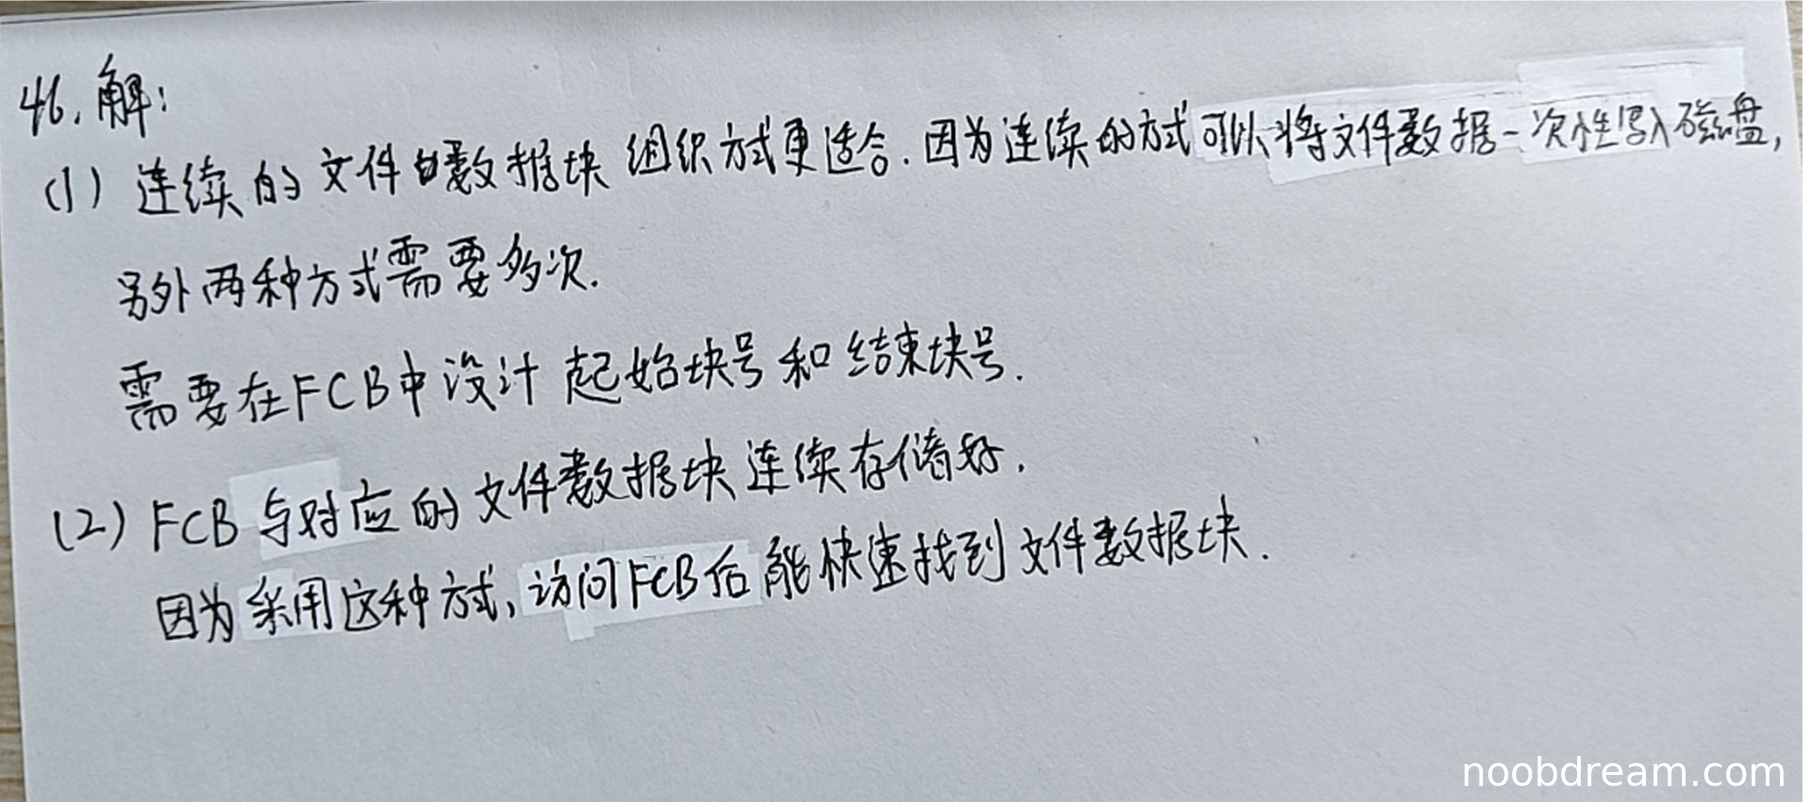 46. 解:
(1) 连续的文件数据块组织方式更适合. 因为连续的方式可以将文件数据一次性写入磁盘,
另外两种方式需要多次.
需要在FCB中设计起始块号和结束块号.
(2) FCB与对应的文件数据块连续存储好.
因为采用这种方式, 访问FCB后能快速找到文件数据块.
noobdream.com